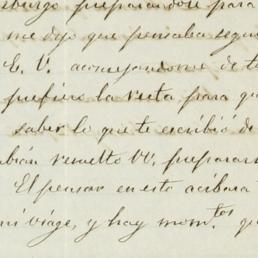 sburgo preparandose para
me dijo que pensaba segui
E. V. aconsejandome de t
prefiero la vuelta para qu
saber lo que te escribió de
abian resuelto VV. preparars
El pensar en esto acibara
mi viage, y hay mom.tos qu